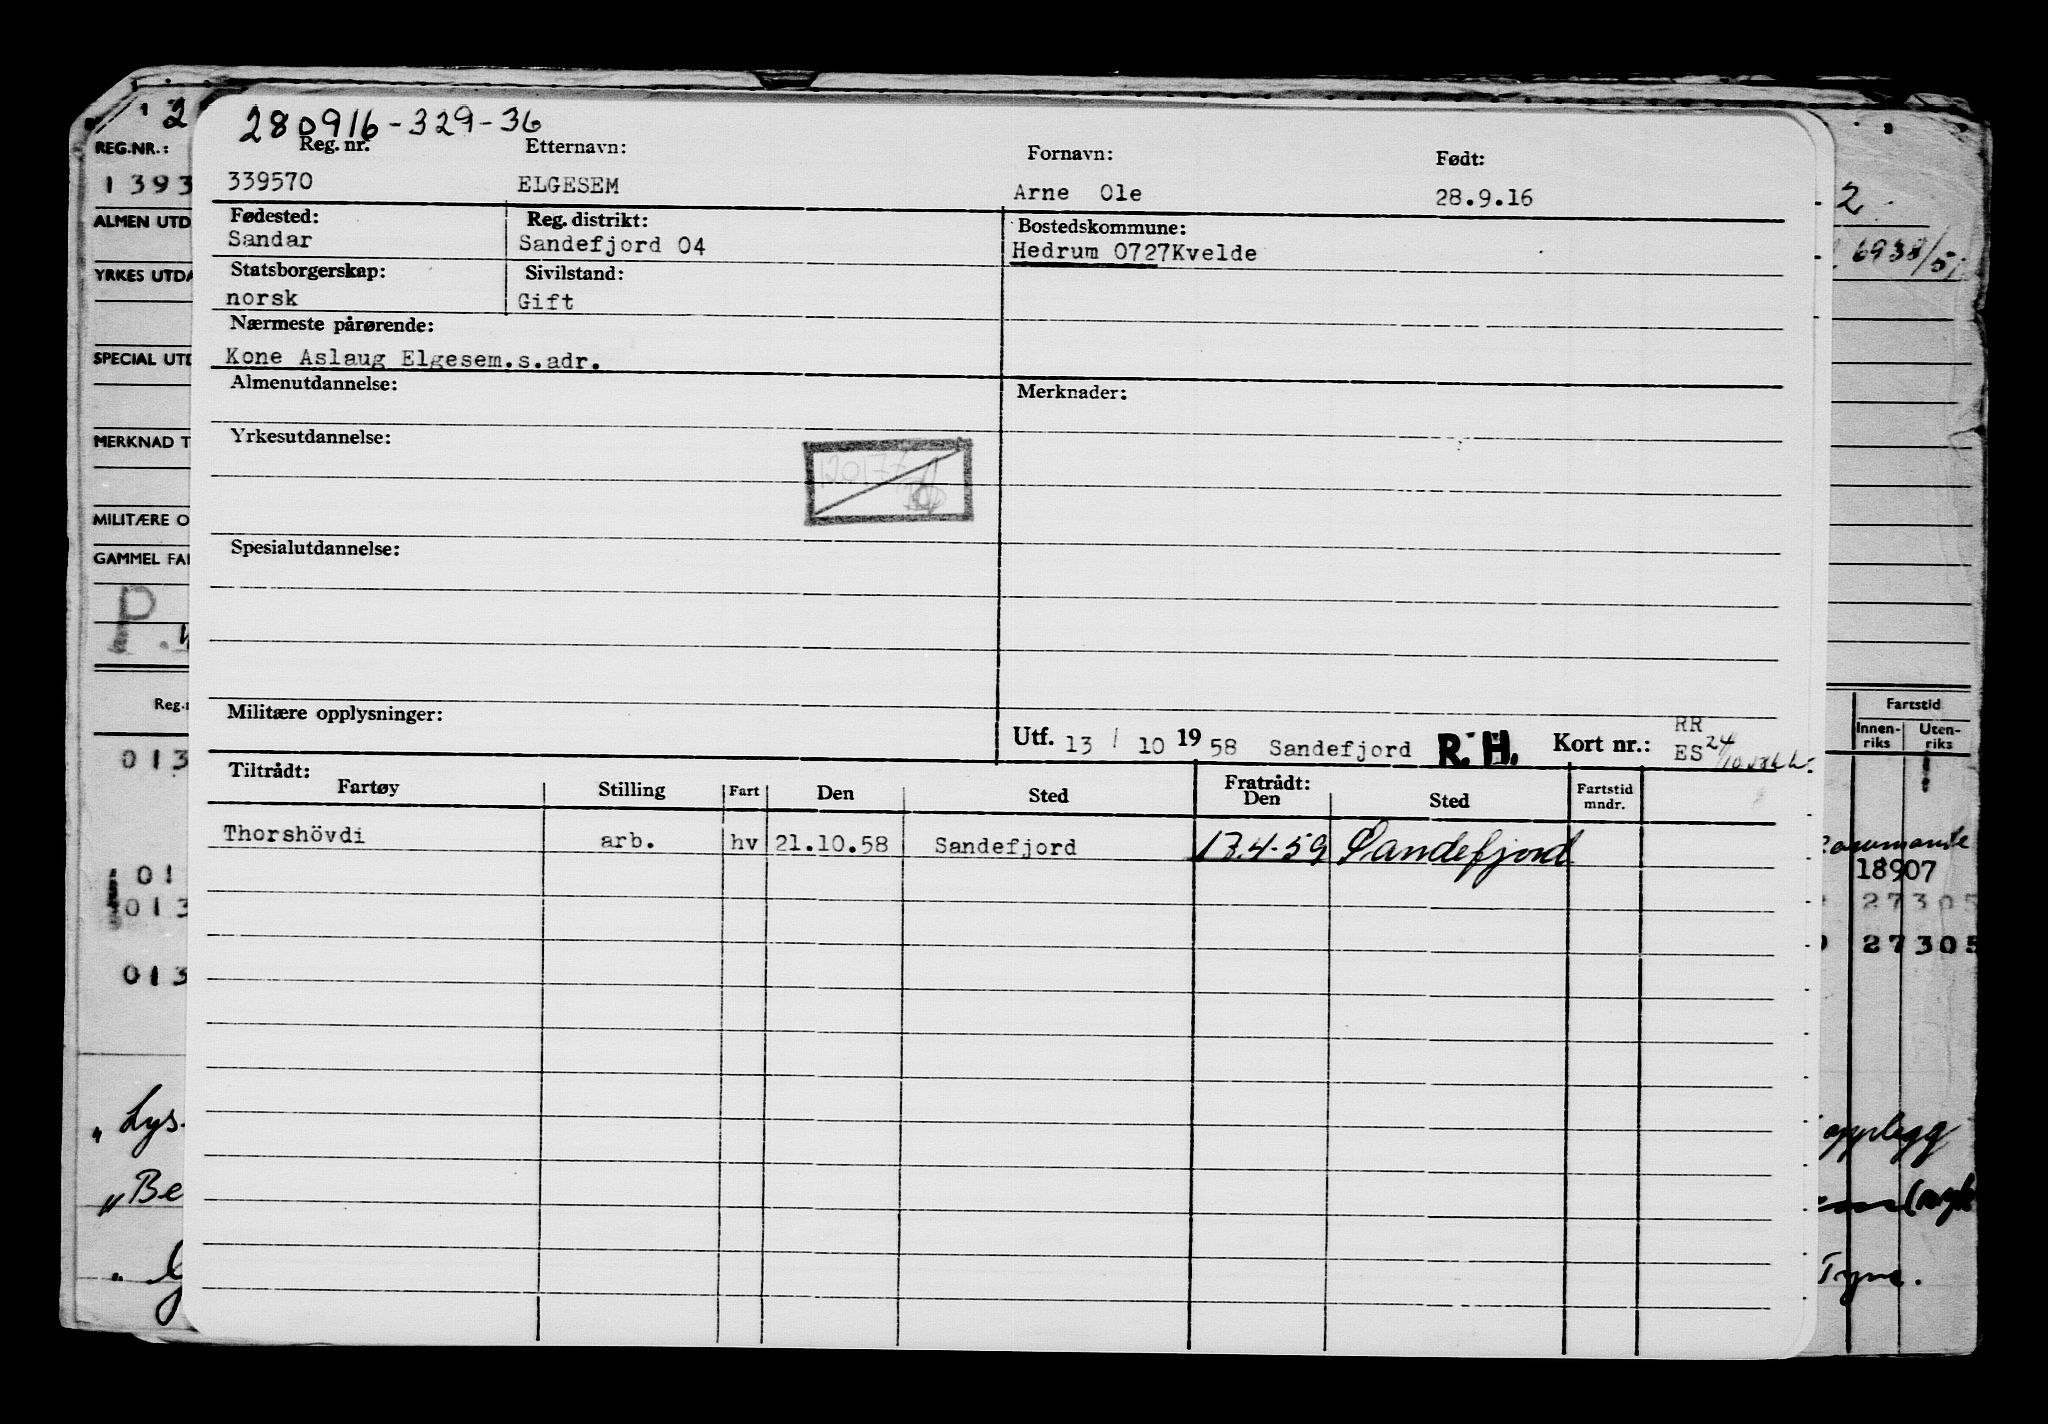 280916-329-36
Reg. nr. Etternavn: Fornavn: Født:
339570 ELGESEM Arne Ole 28.9.16
Fødested: Reg. distrikt: Bostedskommune:
Sandar Sandefjord 04 Hedrum 0727Kvelde
Statsborgerskap: Sivilstand:
norsk Gift
Nærmeste pårørende:
Kone Aslaug Elgesem.s.adr.
Almenutdannelse: Merknader:
Yrkesutdannelse:
Spesialutdannelse:
Militære opplysninger:
Utf. 13 / 10 1958 Sandefjord R.H. Kort nr.: RR
ES
Tiltrådt: Fratrådt:
Fartøy Stilling Fart Den Sted Den Sted Fartstid mndr.
Thorshövdi arb. hv 21.10.58 Sandefjord 13.4-59 Sandefjord
2
REG.NR.:
1393
ALMEN UTD
YRKES UTDA
SPECIAL UTD
MERKNAD T
MILITÆRE O
GAMMEL FAR
P
Reg.n
013
01
013
013
" Lys-
" Be
2
6938/51
Fartstid
Innen-riks Uten-riks
18907
27305
27305
opplegg
Tyne.